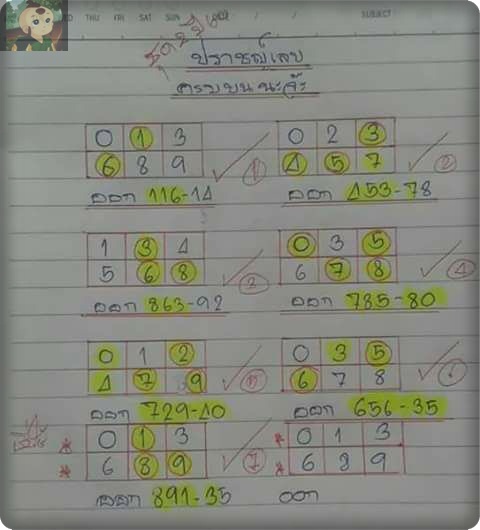 THU FRI SAT SUN / / SUBJECT
ปราชญ์เลข
ครบบนนะจ๊ะ
0 1 3
6 8 9
1
ออก 116-14
0 2 3
4 5 7
2
ออก 453-78
1 3 4
5 6 8
3
ออก 863-92
0 3 5
6 7 8
4
ออก 785-80
0 1 2
4 7 9
5
ออก 729-40
0 3 5
6 7 8
6
ออก 656-35
* 0 1 3
* 6 8 9
7
ออก 891-35
* 0 1 3
* 6 8 9
ออก